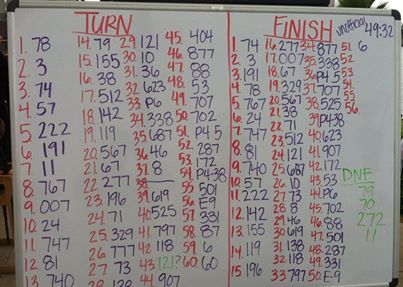 TURN
1. 78
2. 3
3. 74
4. 57
5. 222
6. 191
7. 11
8. 767
9. 007
10. 24
11. 747
12. 81
13. 740
14. 79
15. 155
16. 38
17. 512
18. 142
19. 119
20. 567
21. 67
22. 277
23. 196
24. 71
25. 329
26. 777
27. 73
28. 138
29. 121
30. 10
31. 36
32. 623
33. P6
34. 338
35. 687
36. 46
37. 8
38.
39. 619
40. 525
41. 797
42. 118
43. 121?
44. 907
45. 404
46. 877
47. 88
48. 53
49. 707
50. 702
51. P4.5
52. 287
53. 172
54. P4-38
55. 501
56. E-9
57. 331
58. 87
59. 6
60. 60
FINISH
unofficial 49:32
1. 74
2. 3
3. 191
4. 78
5. 767
6. 24
7. 747
8. 81
9. 740
10. 57
11. 222
12. 142
13. 155
14. 119
15. 196
16. 277
17. 007
18. 67
19. 329
20. 567
21. 38
22. 71
23. 512
24. 121
25. 687
26. 10
27. 73
28. 8
29. 46
30. 619
31. 138
32. 118
33. 797
34. 877
35. 338
36. P4.5
37. 707
38. 525
39. P4-38
40. 623
41. 907
42. 172
43. 53
44. P6
45. 702
46. 88
47. 501
48. 287
49. 331
50. E-9
51. 6
52.
53.
54.
55.
56.
DNF
79
70
272
11